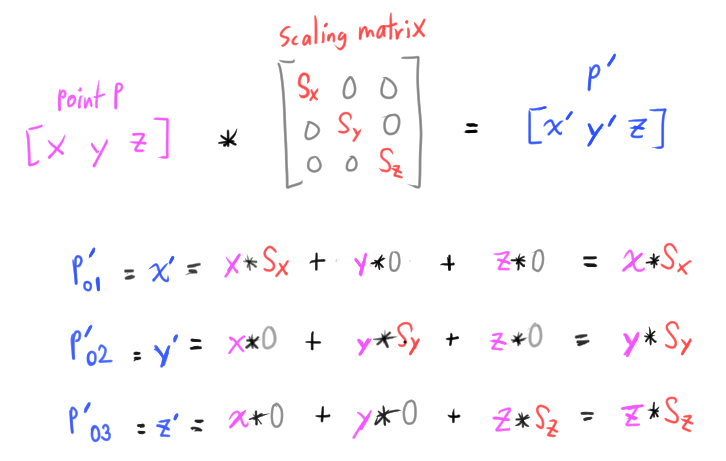 scaling matrix
point P
P'
[x y z] * [Sx 0 0
0 Sy 0
0 0 Sz] = [x' y' z]
P'01 = x' = x*Sx + y*0 + z*0 = x*Sx
P'02 = y' = x*0 + y*Sy + z*0 = y*Sy
P'03 = z' = x*0 + y*0 + z*Sz = z*Sz